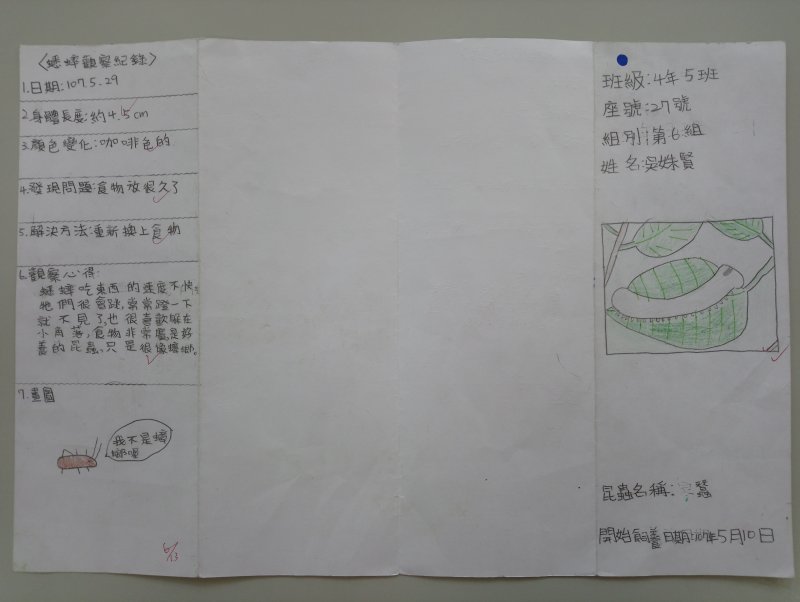 〈蟋蟀觀察紀錄〉
1.日期:107.5.29
2.身體長度:約4.5cm
3.顏色變化:咖啡色的
4.發現問題:食物放很久了
5.解決方法:重新換上食物
6.觀察心得:
蟋蟀吃東西的速度不快。
牠們很會跳,常常蹬一下
就不見了,也很喜歡躲在
小角落,食物非常廣,是好
養的昆蟲,只是很像蟑螂。
7.畫圖
我不是蟑
螂喔
6/13
班級:4年5班
座號:27號
組別:第6組
姓名:吳姝賢
昆蟲名稱:蠶
開始飼養日期:107年5月10日